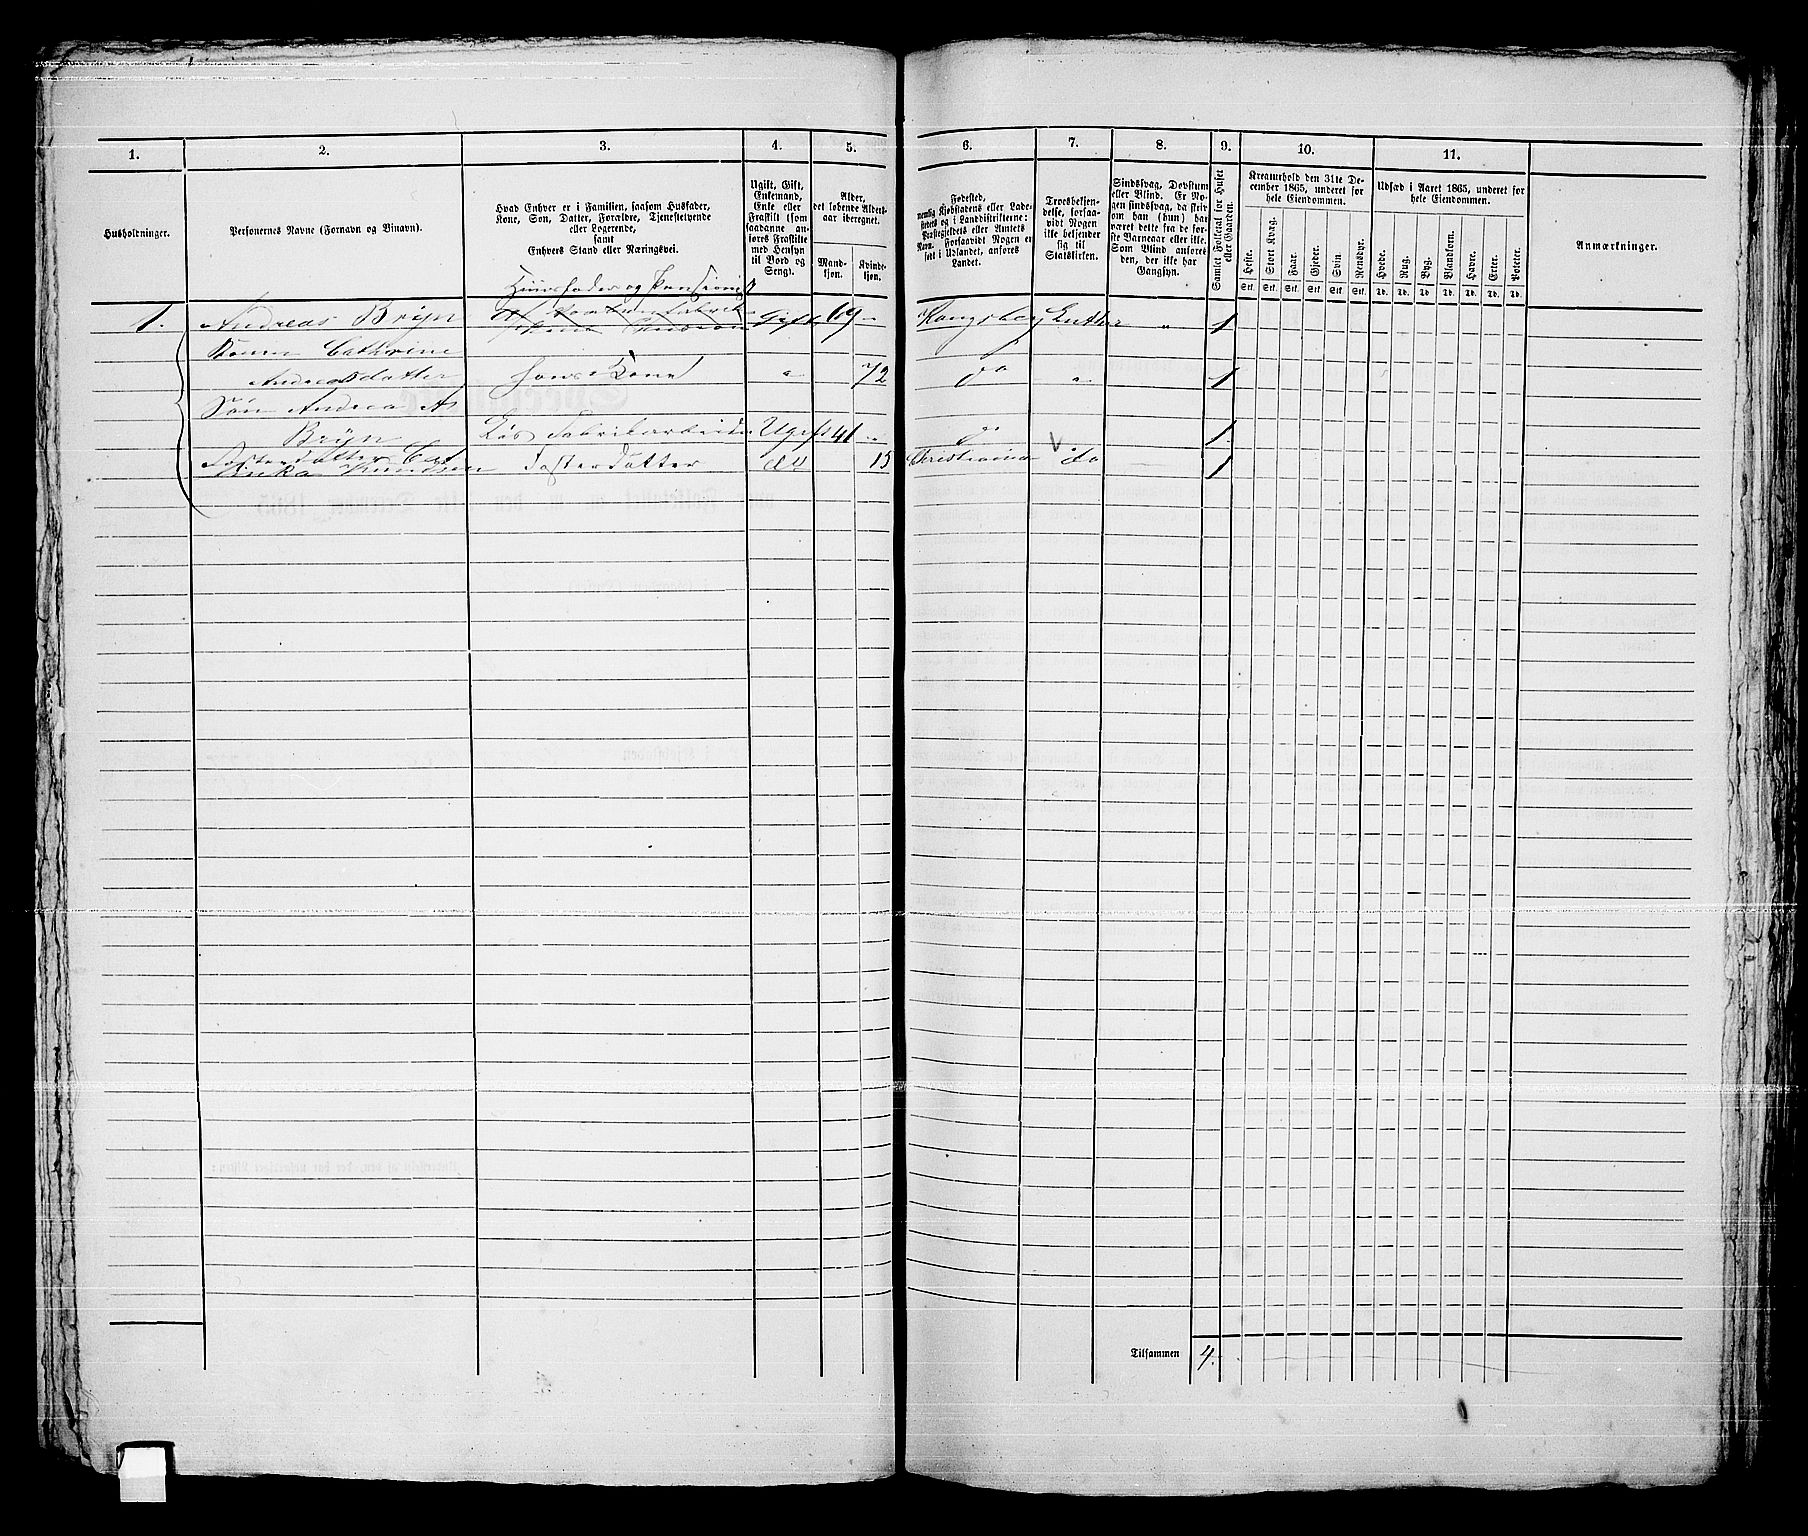 1. 2. 3. 4. 5. 6. 7. 8. 9. 10. 11.
Husholdninger.
Personernes Navne (Fornavn og Binavn).
Hvad Enhver er i Familien, saasom Husfader,
Kone, Søn, Datter, Forældre, Tjenestetyende
eller Logerende,
samt
Enhvers Stand eller Næringsvei.
Ugift, Gift,
Enkemand,
Enke eller
Fraskilt (som
saadanne an-
føres Fraskilte
med Hensyn
til Bord og
Seng).
Alder,
det løbende Alders-
aar iberegnet.
Mand-
kjøn.
Kvinde-
kjøn.
Fødested,
nemlig Kjøbstadens eller Lade-
stedets og i Landdistrikterne:
Præstegjeldets eller Amtets
Navn. Forsaavidt Nogen er
født i Udlandet, anføres
Landet.
Troesbekjen-
delse, forsaa-
vidt Nogen
ikke bekjender
sig til
Statskirken.
Sindssvag, Døvstum
eller Blind. Er No-
gen sindssvag, da skriv
om han (hun) har
været dette fra de før-
ste Barneaar eller ikke.
Som Blind anføres
den, der ikke har
Gangsyn.
Samlet Folketal for Huset
eller Gaarden.
Kreaturhold den 31te De-
cember 1865, underet for
hele Eiendommen.
Heste. Stort Kvæg. Faar. Gjeder. Svin. Rensdyr.
Stk. Stk. Stk. Stk. Stk. Stk.
Udsæd i Aaret 1865, underet for
hele Eiendommen.
Hvede. Rug. Byg. Blandkorn. Havre. Erter. Poteter.
Td. Td. Td. Td. Td. Td. Td.
Anmærkninger.
Huusfader og Pensionist
1. Andreas Brijn Gift 69 " Kongsberg Luther " 1
Konen Cathrine
Andreasdatter hans Kone " 72 do " 1
Søn Andreas A.
Brijn Løs Fabrikarbeider Ugift 41 " do 1
Fosterdatter
Fosterdatter do 15 Christiania do 1
Tilsammen 4.